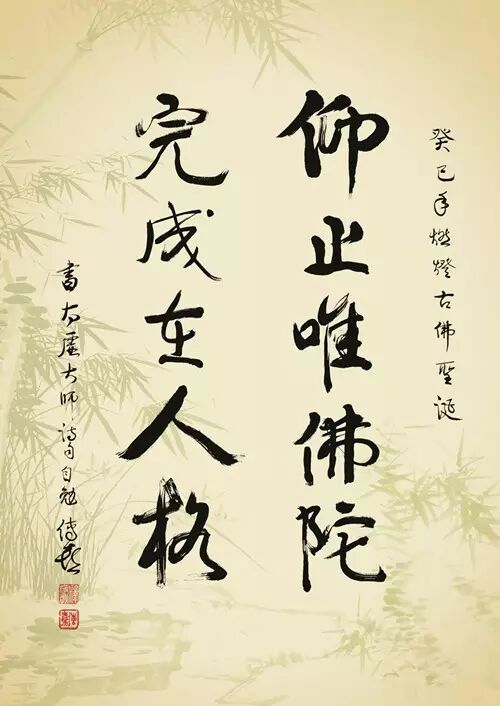 癸巳年燃燈古佛聖誕
仰止唯佛陀
完成在人格
書太虛大師詩句自勉